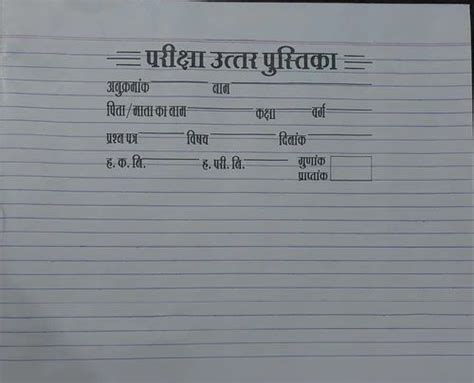 परीक्षा उत्तर पुस्तिका
अनुक्रमांक नाम
पिता/माता का नाम कक्षा वर्ग
प्रश्न पत्र विषय दिनांक
ह. क. नि. ह. परी. नि. गुणांक
प्राप्तांक